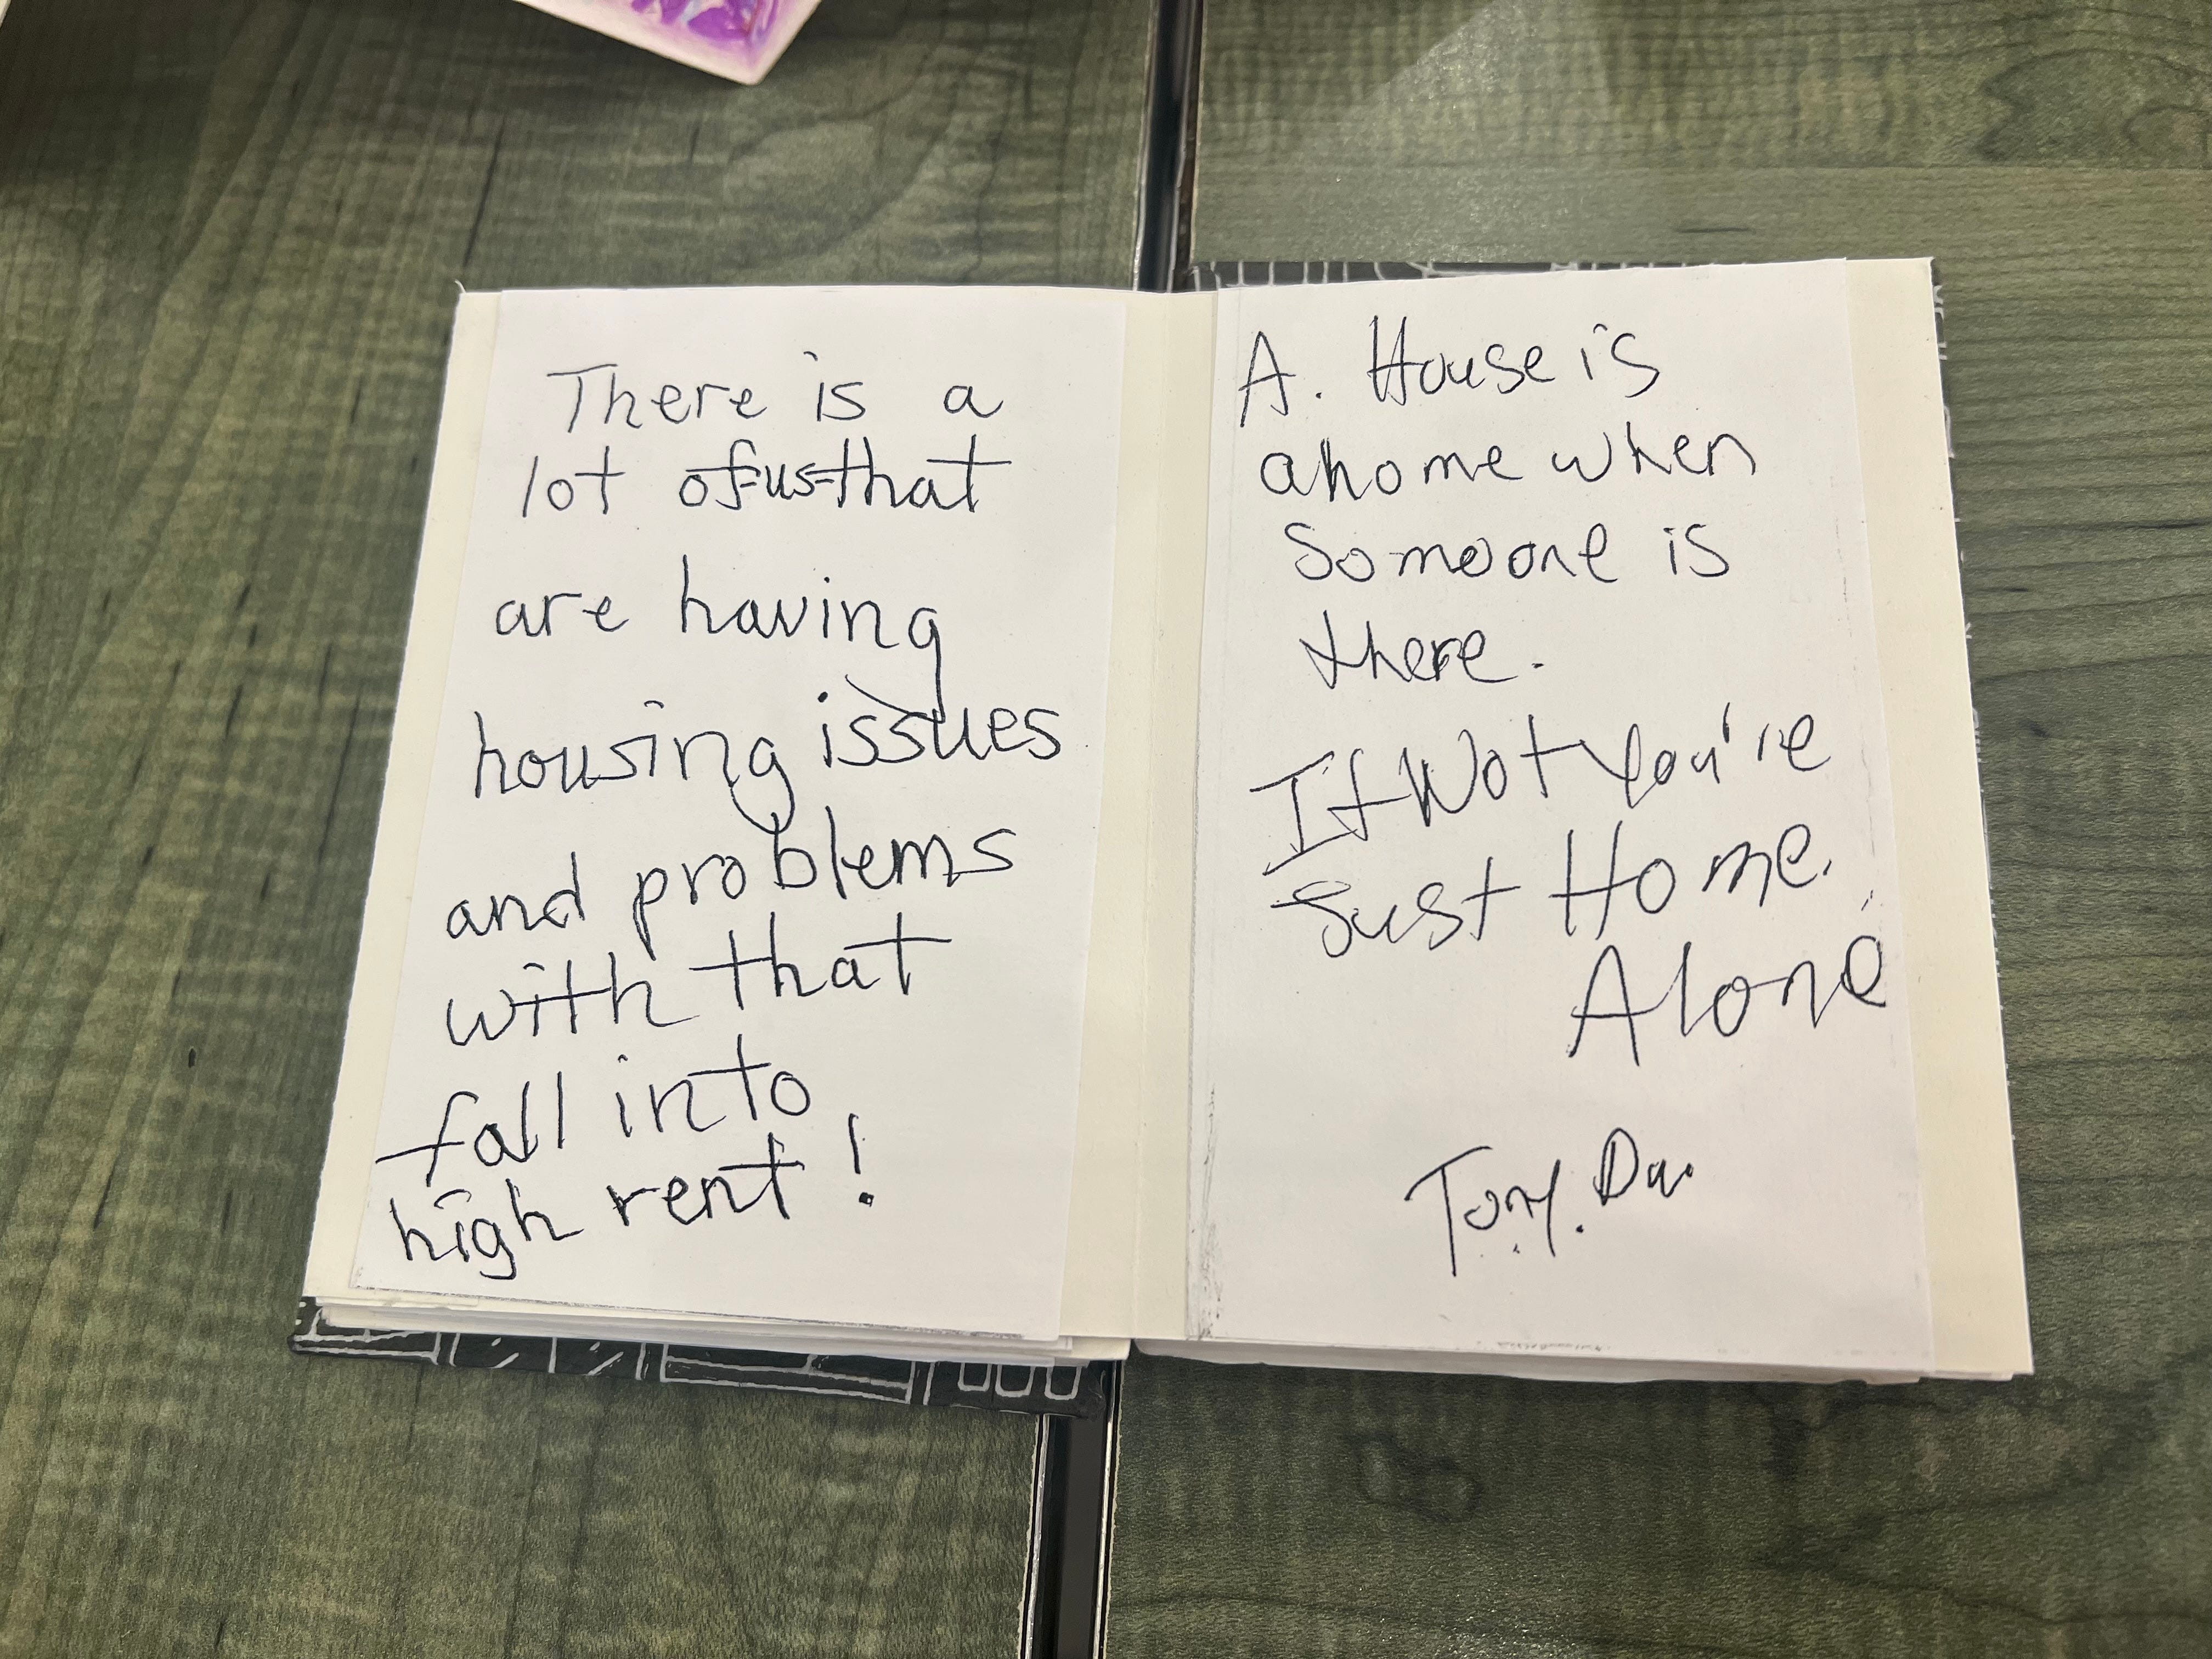 There is a
lot of us that
are having
housing issues
and problems
with that
fall into
high rent!
A. House is
a home when
Someone is
there.
If Not You're
Just Home.
Alone
Tony. Da.